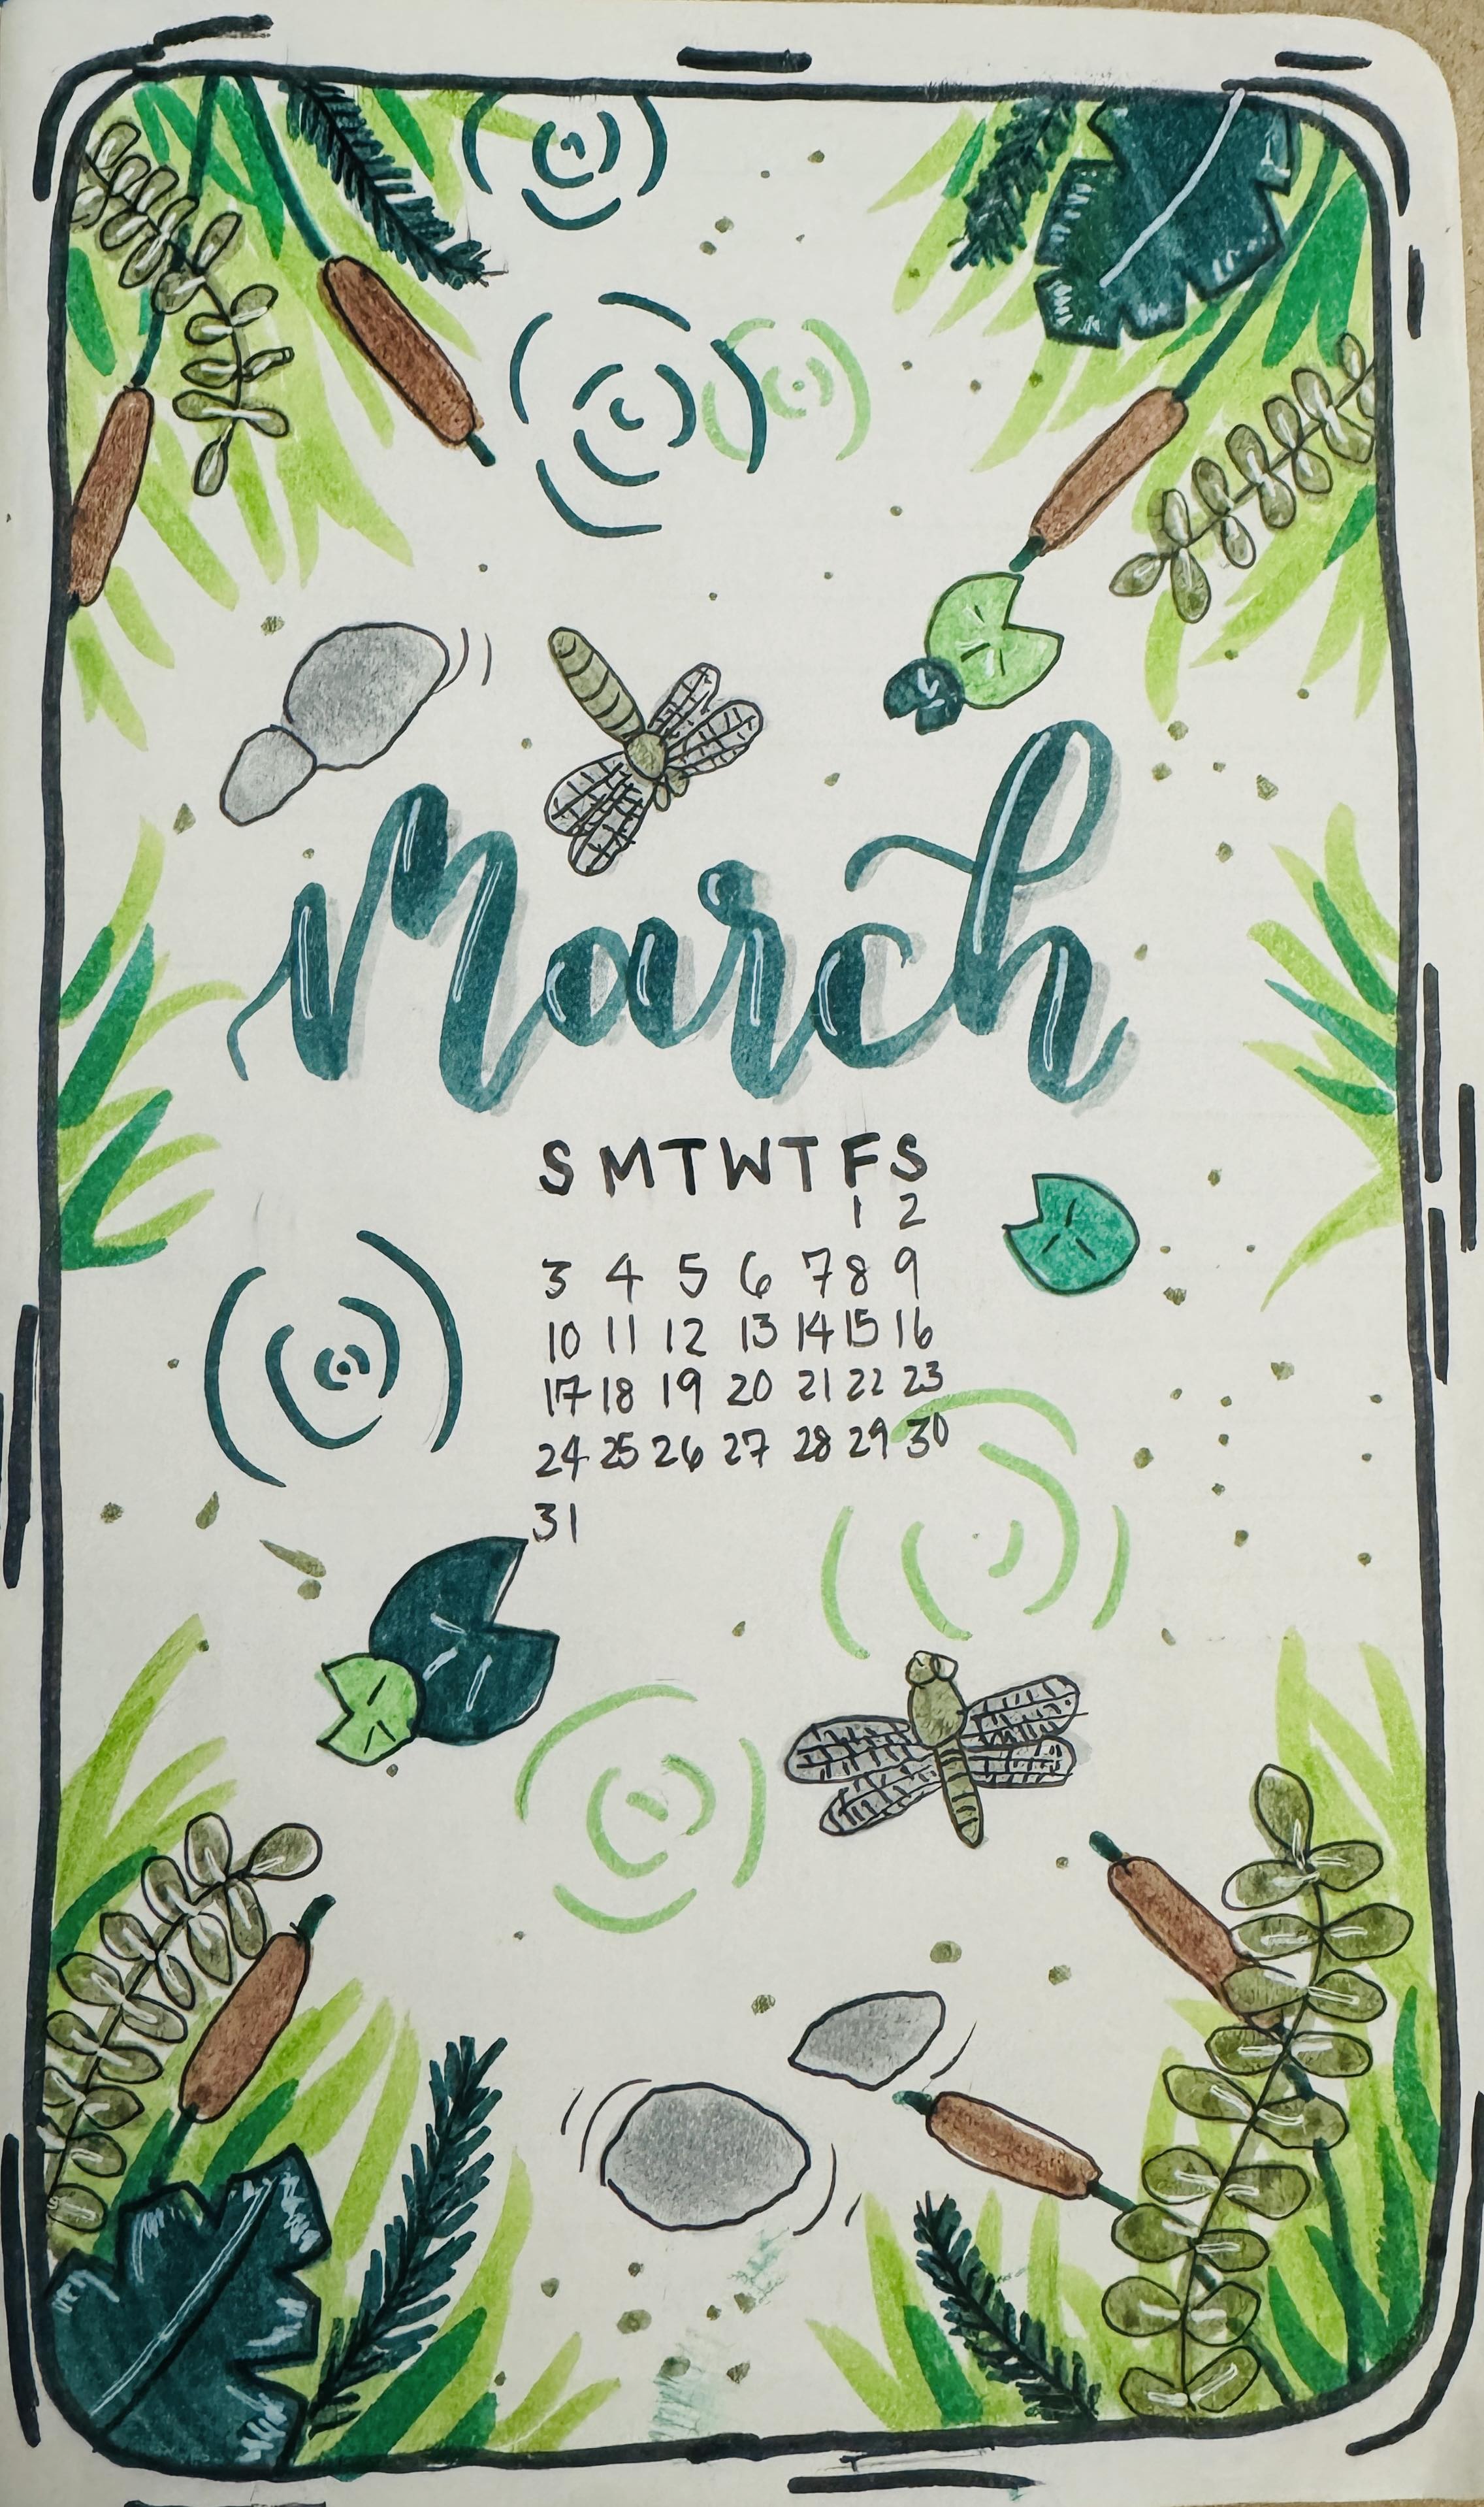 March
S M T W T F S
1 2
3 4 5 6 7 8 9
10 11 12 13 14 15 16
17 18 19 20 21 22 23
24 25 26 27 28 29 30
31